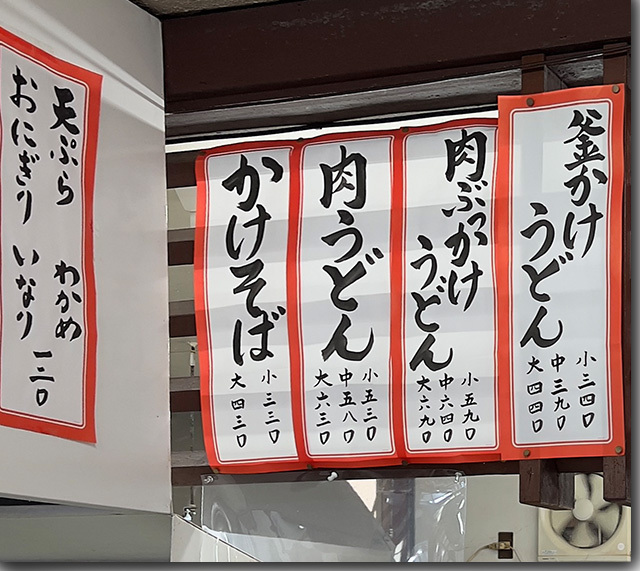 釜かけ
うどん
小三四〇
中三九〇
大四四〇
肉ぶっかけ
うどん
小五九〇
中六四〇
大六九〇
肉うどん
小五三〇
中五八〇
大六三〇
かけそば
小三三〇
大四三〇
天ぷら わかめ
おにぎり いなり
一三〇